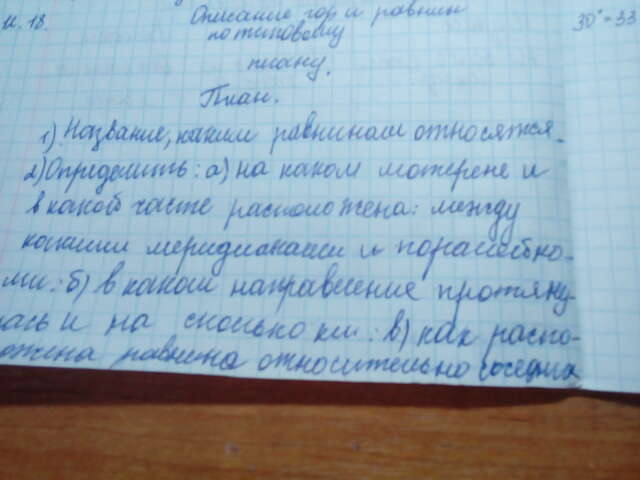 Описание гор и равнин
30° - 33
по типовому
плану.
План.
1) Название, каким равнинам относятся.
2) Определить: а) на каком матерене и
в какой часте расположена: между
какими меридианами и паралельно-
ми: б) в каком направление протяну-
лась и на сколько км: в) как распо-
ожена равнина относительно соседних